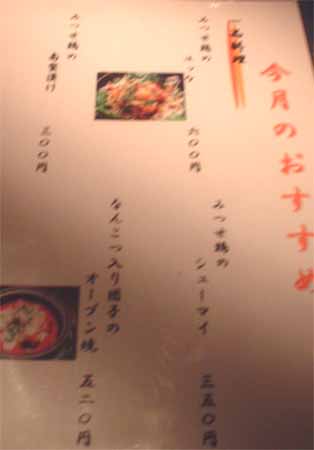 今月のおすすめ
一品料理
みつせ鶏の
ユッケ
六〇〇円
みつせ鶏の
シューマイ
三五〇円
みつせ鶏の
南蛮漬け
三〇〇円
なんこつ入り団子の
オーブン焼
五二〇円